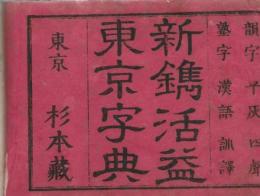 韻字 平仄四聲
熟字 漢語 訓譯
新鐫活益
東京字典
東京 杉本藏